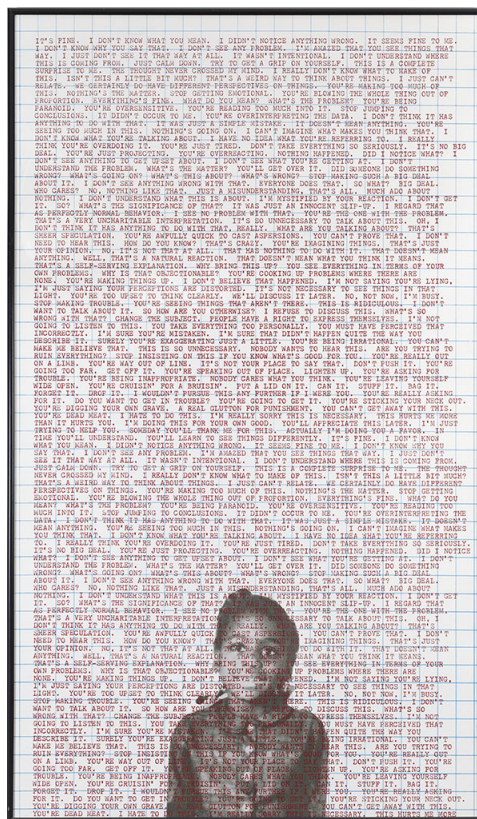 IT'S FINE. I DON'T KNOW WHAT YOU MEAN. I DIDN'T NOTICE ANYTHING WRONG. IT SEEMS FINE TO ME.
I DON'T KNOW WHY YOU SAY THAT. I DON'T SEE ANY PROBLEM. I'M AMAZED THAT YOU SEE THINGS THAT
WAY. I JUST DON'T SEE IT THAT WAY AT ALL. IT WASN'T INTENTIONAL. I DON'T UNDERSTAND WHERE
THIS IS COMING FROM. JUST CALM DOWN. TRY TO GET A GRIP ON YOURSELF. THIS IS A COMPLETE
SURPRISE TO ME. THE THOUGHT NEVER CROSSED MY MIND. I REALLY DON'T KNOW WHAT TO MAKE OF
THIS. ISN'T THIS A LITTLE BIT MUCH? THAT'S A WEIRD WAY TO THINK ABOUT THINGS. I JUST CAN'T
RELATE. WE CERTAINLY DO HAVE DIFFERENT PERSPECTIVES ON THINGS. YOU'RE MAKING TOO MUCH OF
THIS. NOTHING'S THE MATTER. STOP GETTING EMOTIONAL. YOU'RE BLOWING THE WHOLE THING OUT OF
PROPORTION. EVERYTHING'S FINE. WHAT DO YOU MEAN? WHAT'S THE PROBLEM? YOU'RE BEING
PARANOID. YOU'RE OVERSENSITIVE. YOU'RE READING TOO MUCH INTO IT. STOP JUMPING TO
CONCLUSIONS. IT DIDN'T OCCUR TO ME. YOU'RE OVERINTERPRETING THE DATA. I DON'T THINK IT HAS
ANYTHING TO DO WITH THAT. IT WAS JUST A SIMPLE MISTAKE. IT DOESN'T MEAN ANYTHING. YOU'RE
SEEING TOO MUCH IN THIS. NOTHING'S GOING ON. I CAN'T IMAGINE WHAT MAKES YOU THINK THAT. I
DON'T KNOW WHAT YOU'RE TALKING ABOUT. I HAVE NO IDEA WHAT YOU'RE REFERRING TO. I REALLY
THINK YOU'RE OVERDOING IT. YOU'RE JUST TIRED. DON'T TAKE EVERYTHING SO SERIOUSLY. IT'S NO BIG
DEAL. YOU'RE JUST PROJECTING. YOU'RE OVERREACTING. NOTHING HAPPENED. DID I NOTICE WHAT? I
DIDN'T SEE ANYTHING TO GET UPSET ABOUT. I DON'T SEE WHAT YOU'RE GETTING AT. I DON'T
UNDERSTAND THE PROBLEM. WHAT'S THE MATTER? YOU'LL GET OVER IT. DID SOMEONE DO SOMETHING
WRONG? WHAT'S GOING ON? WHAT'S THIS ABOUT? WHAT'S WRONG? STOP MAKING SUCH A BIG DEAL
ABOUT IT. I DON'T SEE ANYTHING WRONG WITH THAT. EVERYONE DOES THAT. SO WHAT? BIG DEAL.
WHO CARES? NO, NOTHING LIKE THAT. JUST A MISUNDERSTANDING, THAT'S ALL. MUCH ADO ABOUT
NOTHING. I DON'T UNDERSTAND WHAT THIS IS ABOUT. I'M MYSTIFIED BY YOUR REACTION. I DON'T GET
IT. SO? WHAT'S THE SIGNIFICANCE OF THAT? IT WAS JUST AN INNOCENT SLIP-UP. I REGARD THAT
AS PERFECTLY NORMAL BEHAVIOR. I SEE NO PROBLEM WITH THAT. YOU'RE THE ONE WITH THE PROBLEM.
THAT'S A VERY UNCHARITABLE INTERPRETATION. IT'S SO UNNECESSARY TO TALK ABOUT THIS. OH, I
DON'T THINK IT HAS ANYTHING TO DO WITH THAT, REALLY. WHAT ARE YOU TALKING ABOUT? THAT'S
SHEER SPECULATION. YOU'RE AWFULLY QUICK TO CAST ASPERSIONS. YOU CAN'T PROVE THAT. I DON'T
NEED TO HEAR THIS. HOW DO YOU KNOW? THAT'S CRAZY. YOU'RE IMAGINING THINGS. THAT'S JUST
YOUR OPINION. NO, IT'S NOT THAT AT ALL. THAT HAS NOTHING TO DO WITH IT. THAT DOESN'T MEAN
ANYTHING. WELL, THAT'S A NATURAL REACTION. THAT DOESN'T MEAN WHAT YOU THINK IT MEANS.
THAT'S A SELF-SERVING EXPLANATION. WHY BRING THIS UP? YOU SEE EVERYTHING IN TERMS OF YOUR
OWN PROBLEMS. WHY IS THAT OBJECTIONABLE? YOU'RE COOKING UP PROBLEMS WHERE THERE ARE
NONE. YOU'RE MAKING THINGS UP. I DON'T BELIEVE THAT HAPPENED. I'M NOT SAYING YOU'RE LYING,
I'M JUST SAYING YOUR PERCEPTIONS ARE DISTORTED. IT'S NOT NECESSARY TO SEE THINGS IN THAT
LIGHT. YOU'RE TOO UPSET TO THINK CLEARLY. WE'LL DISCUSS IT LATER. NO, NOT NOW, I'M BUSY.
STOP MAKING TROUBLE. YOU'RE SEEING THINGS THAT AREN'T THERE. THIS IS RIDICULOUS. I DON'T
WANT TO TALK ABOUT IT. SO HOW ARE YOU OTHERWISE? I REFUSE TO DISCUSS THIS. WHAT'S SO
WRONG WITH THAT? CHANGE THE SUBJECT. PEOPLE HAVE A RIGHT TO EXPRESS THEMSELVES. I'M NOT
GOING TO LISTEN TO THIS. YOU TAKE EVERYTHING TOO PERSONALLY. YOU MUST HAVE PERCEIVED THAT
INCORRECTLY. I'M SURE YOU'RE MISTAKEN. I'M SURE THAT DIDN'T HAPPEN QUITE THE WAY YOU
DESCRIBE IT. SURELY YOU'RE EXAGGERATING JUST A LITTLE. YOU'RE BEING IRRATIONAL. YOU CAN'T
MAKE ME BELIEVE THAT. THIS IS SO UNNECESSARY. NOBODY WANTS TO HEAR THIS. ARE YOU TRYING TO
RUIN EVERYTHING? STOP INSISTING ON THIS IF YOU KNOW WHAT'S GOOD FOR YOU. YOU'RE REALLY OUT
ON A LIMB. YOU'RE WAY OUT OF LINE. IT'S NOT YOUR PLACE TO SAY THAT. DON'T PUSH IT. YOU'RE
GOING TOO FAR. GET OFF IT. YOU'RE SPEAKING OUT OF PLACE. LIGHTEN UP. YOU'RE ASKING FOR
TROUBLE. YOU'RE BEING INAPPROPRIATE. NOBODY CARES WHAT YOU THINK. YOU'RE LEAVING YOURSELF
WIDE OPEN. YOU'RE CRUISIN' FOR A BRUISIN'. PUT A LID ON IT. CAN IT. STUFF IT. BAG IT.
FORGET IT. DROP IT. I WOULDN'T PURSUE THIS ANY FURTHER IF I WERE YOU. YOU'RE REALLY ASKING
FOR IT. DO YOU WANT TO GET IN TROUBLE? YOU'RE GOING TO GET IT. YOU'RE STICKING YOUR NECK OUT.
YOU'RE DIGGING YOUR OWN GRAVE. A REAL GLUTTON FOR PUNISHMENT. YOU CAN'T GET AWAY WITH THIS.
YOU'RE DEAD MEAT. I HATE TO DO THIS. I'M REALLY SORRY THIS IS NECESSARY. THIS HURTS ME MORE
THAN IT HURTS YOU. I'M DOING THIS FOR YOUR OWN GOOD. YOU'LL APPRECIATE THIS LATER. I'M JUST
TRYING TO HELP YOU. SOMEDAY YOU'LL THANK ME FOR THIS. ACTUALLY I'M DOING YOU A FAVOR. IN
TIME YOU'LL UNDERSTAND. YOU'LL LEARN TO SEE THINGS DIFFERENTLY. IT'S FINE. I DON'T KNOW
WHAT YOU MEAN. I DIDN'T NOTICE ANYTHING WRONG. IT SEEMS FINE TO ME. I DON'T KNOW WHY YOU
SAY THAT. I DON'T SEE ANY PROBLEM. I'M AMAZED THAT YOU SEE THINGS THAT WAY. I JUST DON'T
SEE IT THAT WAY AT ALL. IT WASN'T INTENTIONAL. I DON'T UNDERSTAND WHERE THIS IS COMING FROM.
JUST CALM DOWN. TRY TO GET A GRIP ON YOURSELF. THIS IS A COMPLETE SURPRISE TO ME. THE THOUGHT
NEVER CROSSED MY MIND. I REALLY DON'T KNOW WHAT TO MAKE OF THIS. ISN'T THIS A LITTLE BIT MUCH?
THAT'S A WEIRD WAY TO THINK ABOUT THINGS. I JUST CAN'T RELATE. WE CERTAINLY DO HAVE DIFFERENT
PERSPECTIVES ON THINGS. YOU'RE MAKING TOO MUCH OF THIS. NOTHING'S THE MATTER. STOP GETTING
EMOTIONAL. YOU'RE BLOWING THE WHOLE THING OUT OF PROPORTION. EVERYTHING'S FINE. WHAT DO YOU
MEAN? WHAT'S THE PROBLEM? YOU'RE BEING PARANOID. YOU'RE OVERSENSITIVE. YOU'RE READING TOO
MUCH INTO IT. STOP JUMPING TO CONCLUSIONS. IT DIDN'T OCCUR TO ME. YOU'RE OVERINTERPRETING THE
DATA. I DON'T THINK IT HAS ANYTHING TO DO WITH THAT. IT WAS JUST A SIMPLE MISTAKE. IT DOESN'T
MEAN ANYTHING. YOU'RE SEEING TOO MUCH IN THIS. NOTHING'S GOING ON. I CAN'T IMAGINE WHAT MAKES
YOU THINK THAT. I DON'T KNOW WHAT YOU'RE TALKING ABOUT. I HAVE NO IDEA WHAT YOU'RE REFERRING
TO. I REALLY THINK YOU'RE OVERDOING IT. YOU'RE JUST TIRED. DON'T TAKE EVERYTHING SO SERIOUSLY.
IT'S NO BIG DEAL. YOU'RE JUST PROJECTING. YOU'RE OVERREACTING. NOTHING HAPPENED. DID I NOTICE
WHAT? I DIDN'T SEE ANYTHING TO GET UPSET ABOUT. I DON'T SEE WHAT YOU'RE GETTING AT. I DON'T
UNDERSTAND THE PROBLEM. WHAT'S THE MATTER? YOU'LL GET OVER IT. DID SOMEONE DO SOMETHING
WRONG? WHAT'S GOING ON? WHAT'S THIS ABOUT? WHAT'S WRONG? STOP MAKING SUCH A BIG DEAL
ABOUT IT. I DON'T SEE ANYTHING WRONG WITH THAT. EVERYONE DOES THAT. SO WHAT? BIG DEAL.
WHO CARES? NO, NOTHING LIKE THAT. JUST A MISUNDERSTANDING, THAT'S ALL. MUCH ADO ABOUT
NOTHING. I DON'T UNDERSTAND WHAT THIS IS MYSTIFIED BY YOUR REACTION. I DON'T GET
IT. SO? WHAT'S THE SIGNIFICANCE OF THAT AN INNOCENT SLIP-UP. I REGARD THAT
AS PERFECTLY NORMAL BEHAVIOR. I SEE NO YOU'RE THE ONE WITH THE PROBLEM.
THAT'S A VERY UNCHARITABLE INTERPRETATI TO TALK ABOUT THIS. OH, I
DON'T THINK IT HAS ANYTHING TO DO WITH ARE YOU TALKING ABOUT? THAT'S
SHEER SPECULATION. YOU'RE AWFULLY QUICK YOU CAN'T PROVE THAT. I DON'T
NEED TO HEAR THIS. HOW DO YOU KNOW? IMAGINING THINGS. THAT'S JUST
YOUR OPINION. NO, IT'S NOT THAT AT ALL. DO WITH IT. THAT DOESN'T MEAN
ANYTHING. WELL, THAT'S A NATURAL REACT WHAT YOU THINK IT MEANS.
THAT'S A SELF-SERVING EXPLANATION. WHY SEE EVERYTHING IN TERMS OF YOUR
OWN PROBLEMS. WHY IS THAT OBJECTIONABLE UP PROBLEMS WHERE THERE ARE
NONE. YOU'RE MAKING THINGS UP. I DON'T BELIEVE I'M NOT SAYING YOU'RE LYING,
I'M JUST SAYING YOUR PERCEPTIONS ARE NECESSARY TO SEE THINGS IN THAT
LIGHT. YOU'RE TOO UPSET TO THINK CLEARLY IT LATER. NO, NOT NOW, I'M BUSY.
STOP MAKING TROUBLE. YOU'RE SEEING THIS IS RIDICULOUS. I DON'T
WANT TO TALK ABOUT IT. SO HOW ARE DISCUSS THIS. WHAT'S SO
WRONG WITH THAT? CHANGE THE EXPRESS THEMSELVES. I'M NOT
GOING TO LISTEN TO THIS. YOU YOU MUST HAVE PERCEIVED THAT
INCORRECTLY. I'M SURE YOU'RE QUITE THE WAY YOU
DESCRIBE IT. SURELY YOU'RE BEING IRRATIONAL. YOU CAN'T
MAKE ME BELIEVE THAT. THIS IS THIS. ARE YOU TRYING TO
RUIN EVERYTHING? STOP INSISTING YOU. YOU'RE REALLY OUT
ON A LIMB. YOU'RE WAY OUT OF DON'T PUSH IT. YOU'RE
GOING TOO FAR. GET OFF IT. UP. YOU'RE ASKING FOR
TROUBLE. YOU'RE BEING INAPPROP YOU'RE LEAVING YOURSELF
WIDE OPEN. YOU'RE CRUISIN' FOR IT. STUFF IT. BAG IT.
FORGET IT. DROP IT. I WOULDN'T YOU. YOU'RE REALLY ASKING
FOR IT. DO YOU WANT TO GET IN IT. YOU'RE STICKING YOUR NECK OUT.
YOU'RE DIGGING YOUR OWN GRAVE. YOU CAN'T GET AWAY WITH THIS.
YOU'RE DEAD MEAT. I HATE TO THIS HURTS ME MORE